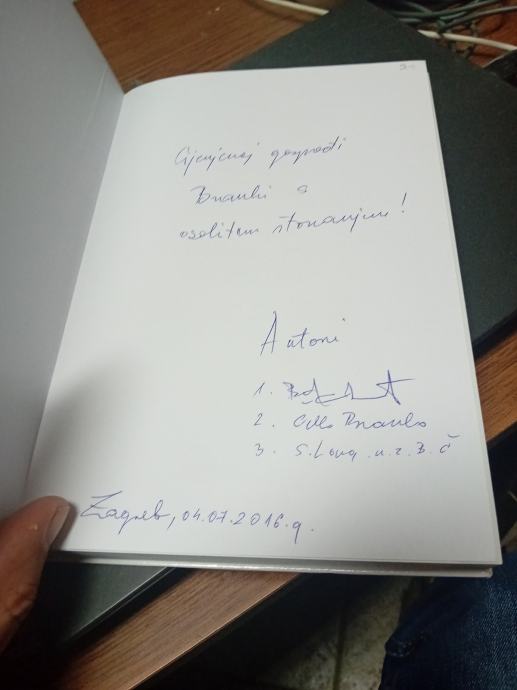 Cijenjenoj gospođi
Branki s
osobitim štovanjem!
Autori
1.
2. Branko
3.
Zagreb, 04.07.2016.g.